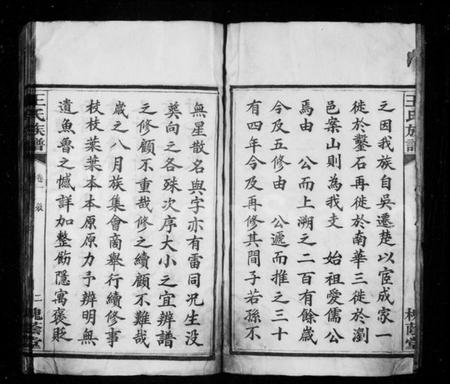 之因我族自吳遷楚以宦成家一
徙於鑿石再徙於南華三徙於瀏
邑案山則為我支　始祖愛儒公
焉由　公而上溯之二百有餘歲
今及五修由　公遞而推之三十
有四年今及再修其間子若孫不
王氏族譜
無星散名與字亦有雷同況生沒
葬向之各殊次序大小之宜辨譜
之修顧不重哉修之續顧不難哉
歲之八月族集會商舉行續修事
枝枝葉葉本本原原力予辨明無
遺魚魯之憾詳加整飭隱寓褒貶
王氏族譜
卷一
二
槐蔭堂